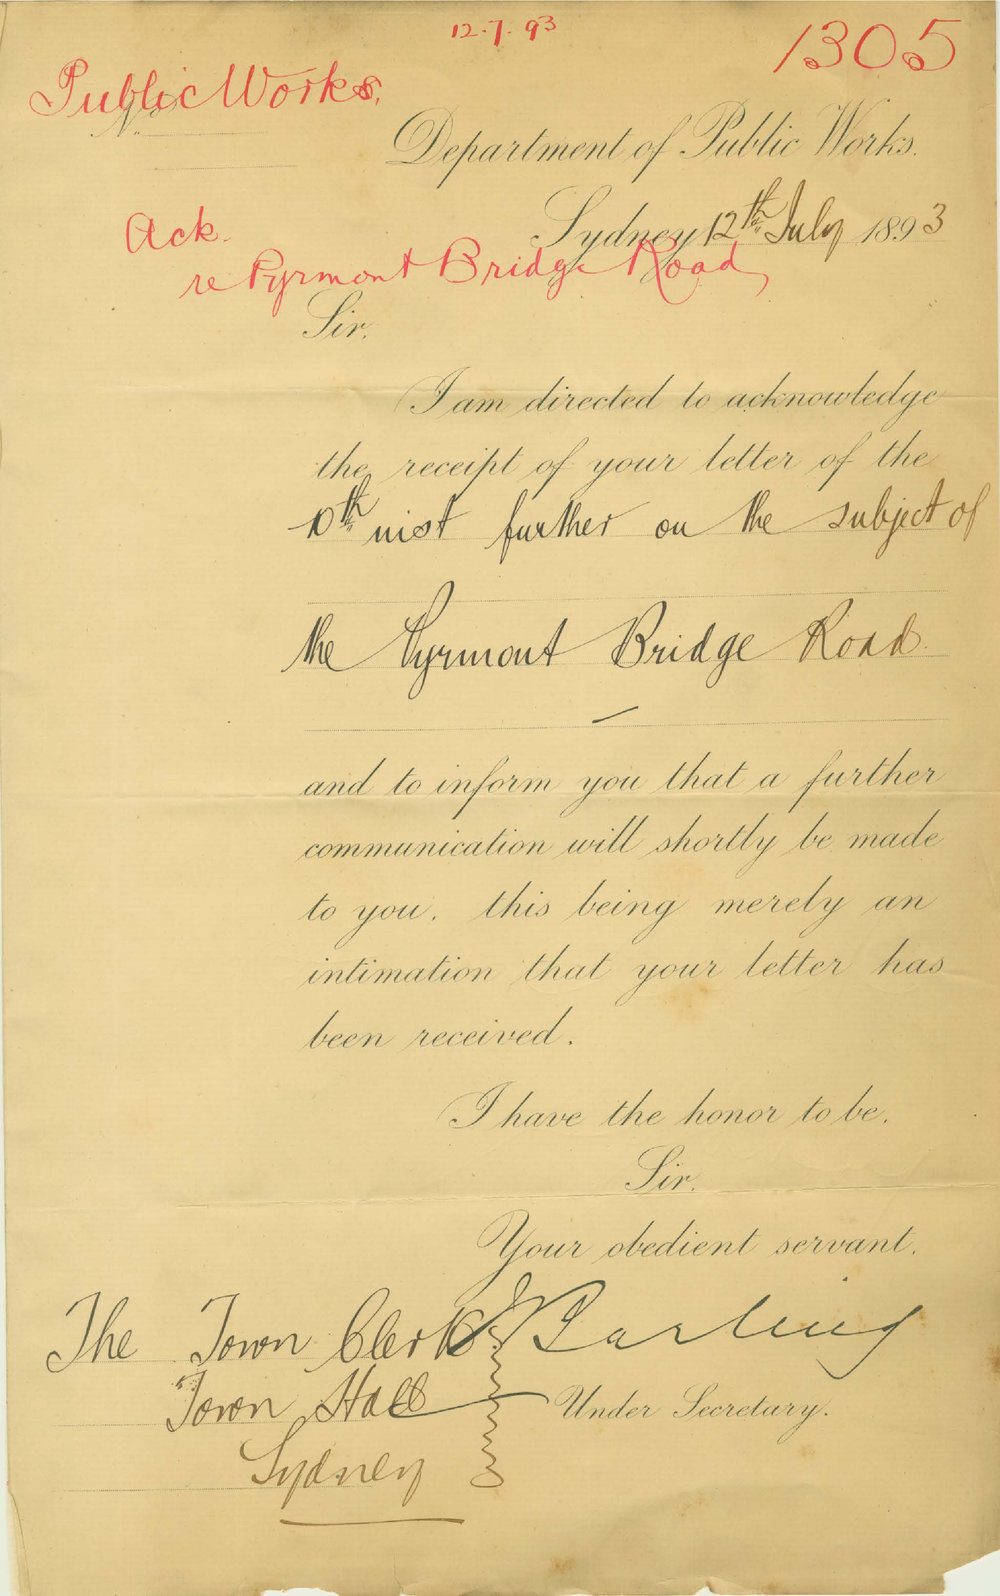 12.7.93
1305
Public Works.
No.
Department of Public Works.
Sydney 12th July 1893
Ack.
re Pyrmont Bridge Road
Sir.
I am directed to acknowledge
the receipt of your letter of the
10th inst further on the subject of
the Pyrmont Bridge Road.
and to inform you that a further
communication will shortly be made
to you, this being merely an
intimation that your letter has
been received.
I have the honor to be,
Sir,
Your obedient servant.
The Town Clerk
Town Hall
Under Secretary.
Sydney